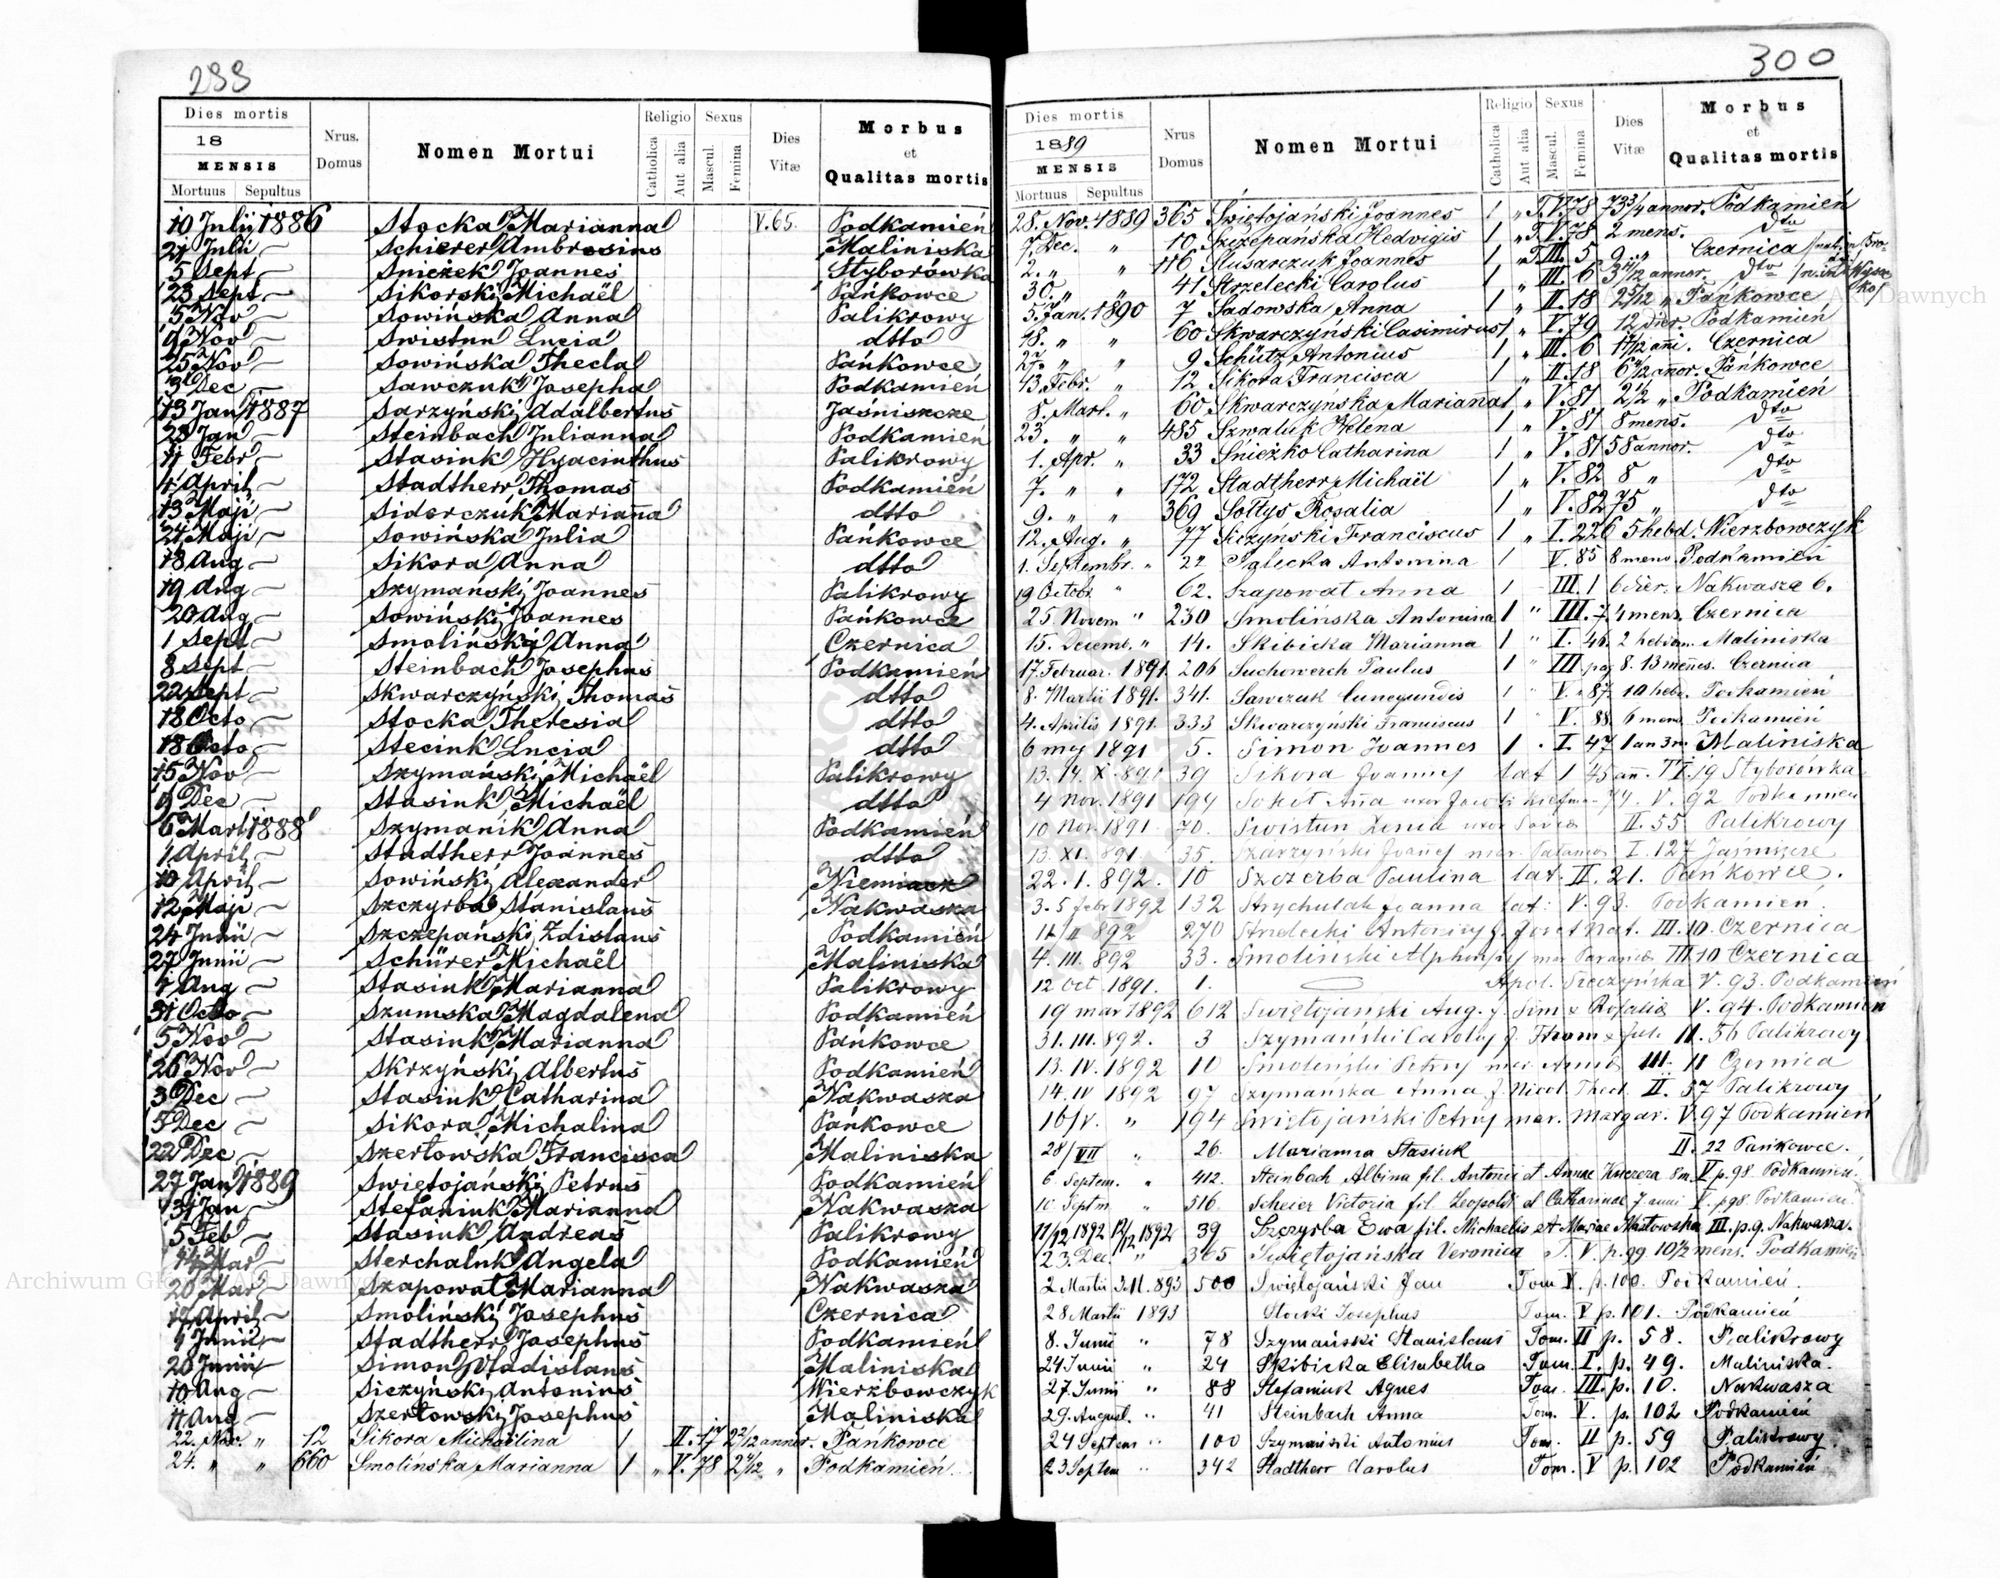 288
Dies mortis
18
MENSIS
Mortuus Sepultus
Nrus. Domus
Nomen Mortui
Religio
Catholica
Aut alia
Sexus
Mascul.
Femina
Dies Vitæ
Morbus et Qualitas mortis
10 Julij 1886 Stocka Marianna V. 65. Podkamień
21 Julii — Schierer Ambrosius Maliniska
5 Sept — Snieżek Joannes Styborówka
23 Sept — Sikorski Michaël Pańkowce
5 Nov — Sowińska Anna Palikrowy
9 Nov — Swistun Lucia dtto
25 Nov — Sowińska Thecla Pańkowce
Dec — Sawczuk Josepha Podkamień
13 Jan 1887 Sarzyński Adalbertus Jaśniszcze
28 Jan — Steinbach Julianna Podkamień
11 Febr — Stasiuk Hyacinthus Palikrowy
4 April — Stadtherr Thomas Podkamień
13 Maji — Siderczuk Marianna dtto
21 Maji — Sowińska Julia Pańkowce
18 Aug — Sikora Anna dtto
19 Aug — Szymański Joannes Palikrowy
20 Aug — Sowiński Joannes Pańkowce
1 Sept — Smolińska Anna Czernica
8 Sept — Steinbach Josephus Podkamień
22 Sept — Skwarczyński Thomas dtto
18 Octo — Stocka Theresia dtto
18 Octo — Steciuk Lucia dtto
15 Nov — Szymański Michaël Palikrowy
9 Dec — Stasiuk Michaël dtto
6 Mart 1888 Szymanik Anna Podkamień
1 April — Stadtherr Joannes dtto
10 April — Sowiński Alexander Niemiacz
12 Maji — Szczyrba Stanislaus Nakwasza
24 Junii — Szczepański Zdislaus Podkamień
27 Junii — Schürer Michaël Maliniska
7 Aug — Stasiuk Marianna Palikrowy
31 Octo — Szumska Magdalena Podkamień
5 Nov — Stasiuk Marianna Pańkowce
26 Nov — Skrzyński Albertus Podkamień
3 Dec — Stasiuk Catharina Nakwasza
5 Dec — Sikora Michalina Pańkowce
22 Dec — Szertowska Francisca Maliniska
27 Jan 1889 Swiętojański Petrus Podkamień
31 Jan — Stefaniuk Marianna Nakwasza
5 Feb — Stasiuk Andreas Palikrowy
14 Mar — Sterchaluk Angela Podkamień
20 Mar — Szapowat Marianna Nakwasza
17 April — Smoliński Josephus Czernica
9 Junii — Stadtherr Josephus Podkamień
20 Junii — Simon Vladislaus Maliniska
10 Aug — Siczyński Antonius Wierzbowczyk
11 Aug — Szertowski Josephus Maliniska
22. Nov. " 12 Sikora Michaëlina 1 II. 17 2 2/12 annor. Pańkowce
24. " " 660 Smolińska Marianna 1 " V. 78 " Podkamień
300
Dies mortis
1889
MENSIS
Mortuus Sepultus
Nrus Domus
Nomen Mortui
Religio
Catholica
Aut alia
Sexus
Mascul.
Femina
Dies Vitæ
Morbus et Qualitas mortis
28. Nov. 1889 365 Świętojański Joannes 1 " T. V. 78 73 3/4 annor. Podkamień
7. Dec. " 10 Szczepańska Hedvigis 1 " T. V. 78 2 mens. dto
2. " " 116 Slusarczuk Joannes 1 " T. III. 5 9 " Czernica
30. " " 41 Strzelecki Carolus 1 " III. 6 annor. dto
5. Jan. 1890 7 Sadowska Anna 1 " II. 18 " Pańkowce
18. " " 60 Skwarczyński Casimirus 1 " V. 79 12 dier. Podkamień
27. " " 9 Schütz Antonius 1 " III. 6 ańi. Czernica
13 Febr. " 12 Sikora Francisca 1 " II. 18 6 1/2 anor. Pańkowce
8. Mart. " 60 Skwarczyńska Mariana 1 " V. 81 2 1/2 " Podkamień
23. " " 485 Szwaluk Helena 1 " V. 81 8 mens. dto
1. Apr. " 33 Śnieżko Catharina 1 " V. 81 58 annor. dto
7. " " 172 Stadtherr Michaël 1 " V. 82 8 " dto
9. " " 369 Sołtys Rosalia 1 " V. 82 75 " dto
12. Aug. " 77 Siczyński Franciscus 1 " I. 226 5 hebd. Wierzbowczyk
1. Septembr. " 22 Antonina 1 V. 85 8 mens Podkamień
19 Octobr " 62. Szapowat Anna 1 – III. 1 6 dier. Nakwasza 6.
25. Novem " 230 Smolińska Antonina 1 " III. 7 4 mens. Czernica
15. Decemb. " 14. Skibicka Marianna 1 " I. 46. 2 hebdom. Maliniska
17. Februar. 1891. 206 Suchowerch Paulus 1 " III pag 8. 13 meñes. Czernica
8. Martii 1891. 341. Sawczuk Cunegundis 1 " V. " 87. 10 hebd. Podkamień
4. Aprilis 1891. 333 Skwarczyński Franciscus 1 V. 88. 6 mens. Podkamień
6 maj 1891 5. Simon Joannes 1 . I. 47 1 an 3 m. Maliniska
13. 14. X. 891 39 Sikora Joannes lat 1 45 ań. T I. 19 Styborówka
4 Nov. 1891 194 Anna uxor Jacobi 74. V. 92 Podkamień
10 Nov. 1891. 70. Swistun Xenia uxor II. 55 Palikrowy
13. XI. 891. 35. Szarzyński mar. I. 127 Jasniszcze
22. 1. 892. 10 Szczerba Paulina lat. II. 21. Pańkowce.
3. 5 febr 1892 132 Joanna lat: V. 93. Podkamień.
II 892 270 Strzelecki f. Josef III. 10. Czernica
4. III. 892 33. Smoliński mar III 10 Czernica
12 Oct 1891. 1. Apol. Siczyńska V. 93. Podkamień
19 mar 1892 612 Swiętojański Aug. f. Sim & Rosalia V. 94. Podkamień
31. III. 892. 3 Szymański f. Thom & Jul. II. 56 Palikrowy
13. IV. 1892 10 Smoleński mar Anna III. 11 Czernica
14. IV 1892 97 Szymańska Anna f. Nicol. Thecl. II. 57 Palikrowy
16/V. " 194 Swiętojański mar. Margar. V. 97 Podkamień
28/VII " 26. Marianna Stasiuk II. 22 Pańkowce.
6 Septem. " 412. Steinbach Albina fil. Antonii et Annae 8 m. V p. 98. Podkamień.
10 Septm " 516 Scheier Victoria fil. Leopoldi et Catharinae 7 anni V. p 98. Podkamień
11/12 1892 12/12 1892 39 Szczyrba Ewa fil. Michaelis et Mariae III. p. 9. Nakwasza.
23. Dec. " 365 Swiętojańska Veronica T. V. p. 99 10 1/2 mens. Podkamień
2 Martii 893 500 Swiętojański Jan Tom V. p. 100. Podkamień.
28 Martii 1893 Stocki Josephus Tom. V p. 101. Podkamień
8. Junii " 78 Szymański Stanislaus Tom. II p. 58. Palikrowy
24 Junii " 24 Skibicka Elisabetha Tom. I. p. 49. Maliniska.
27. Junii " 88 Stefaniuk Agnes Tom. III. p. 10. Nakwasza
29. August. " 41 Steinbach Anna Tom. V. p. 102 Podkamień
24 Septem " 100 Szymański Antonius Tom. II p. 59 Palikrowy.
23 Septem " 342 Stadtherr Carolus Tom. V p. 102 Podkamień